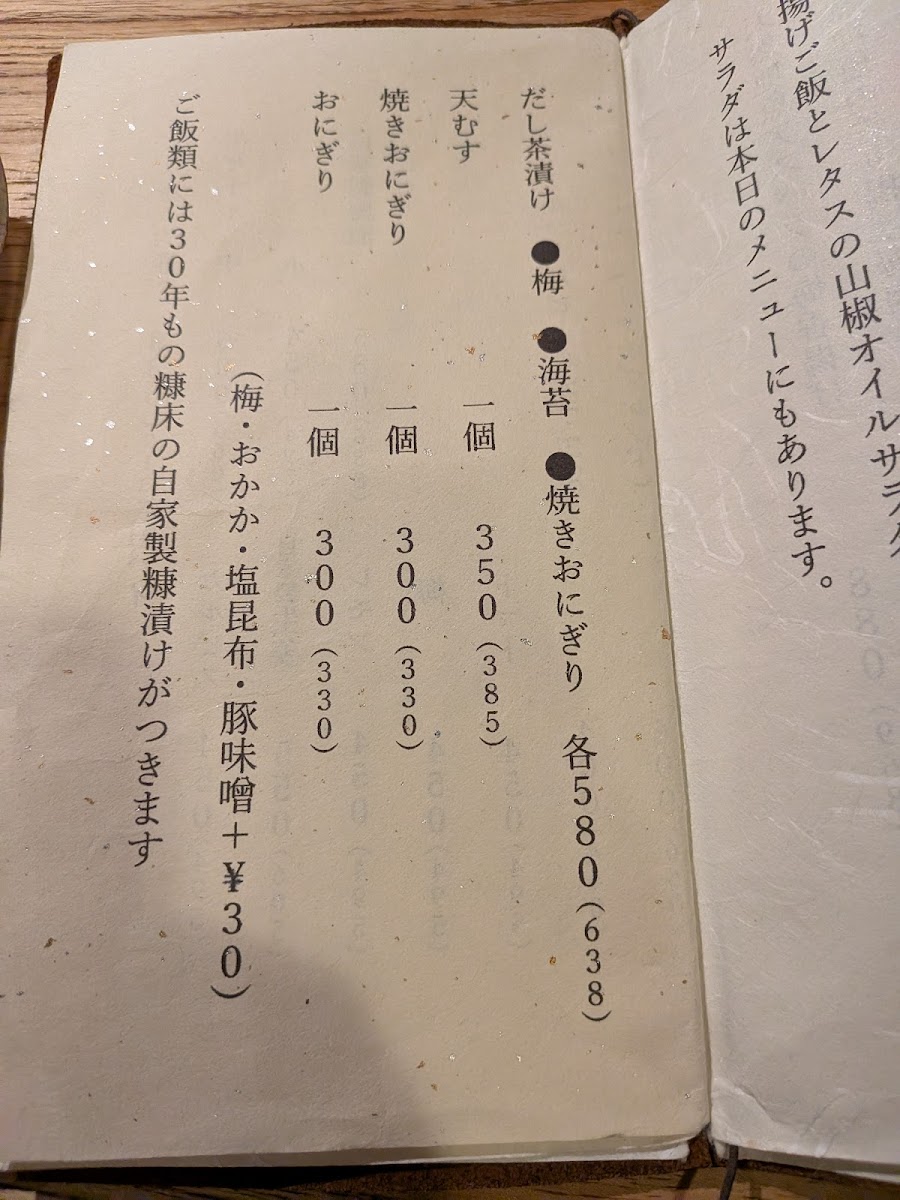 揚げご飯とレタスの山椒オイルサラダ
サラダは本日のメニューにもあります。
だし茶漬け ●梅 ●海苔 ●焼きおにぎり 各580(638)
天むす 一個 350(385)
焼きおにぎり 一個 300(330)
おにぎり 一個 300(330)
(梅・おかか・塩昆布・豚味噌+¥30)
ご飯類には30年もの糠床の自家製糠漬けがつきます